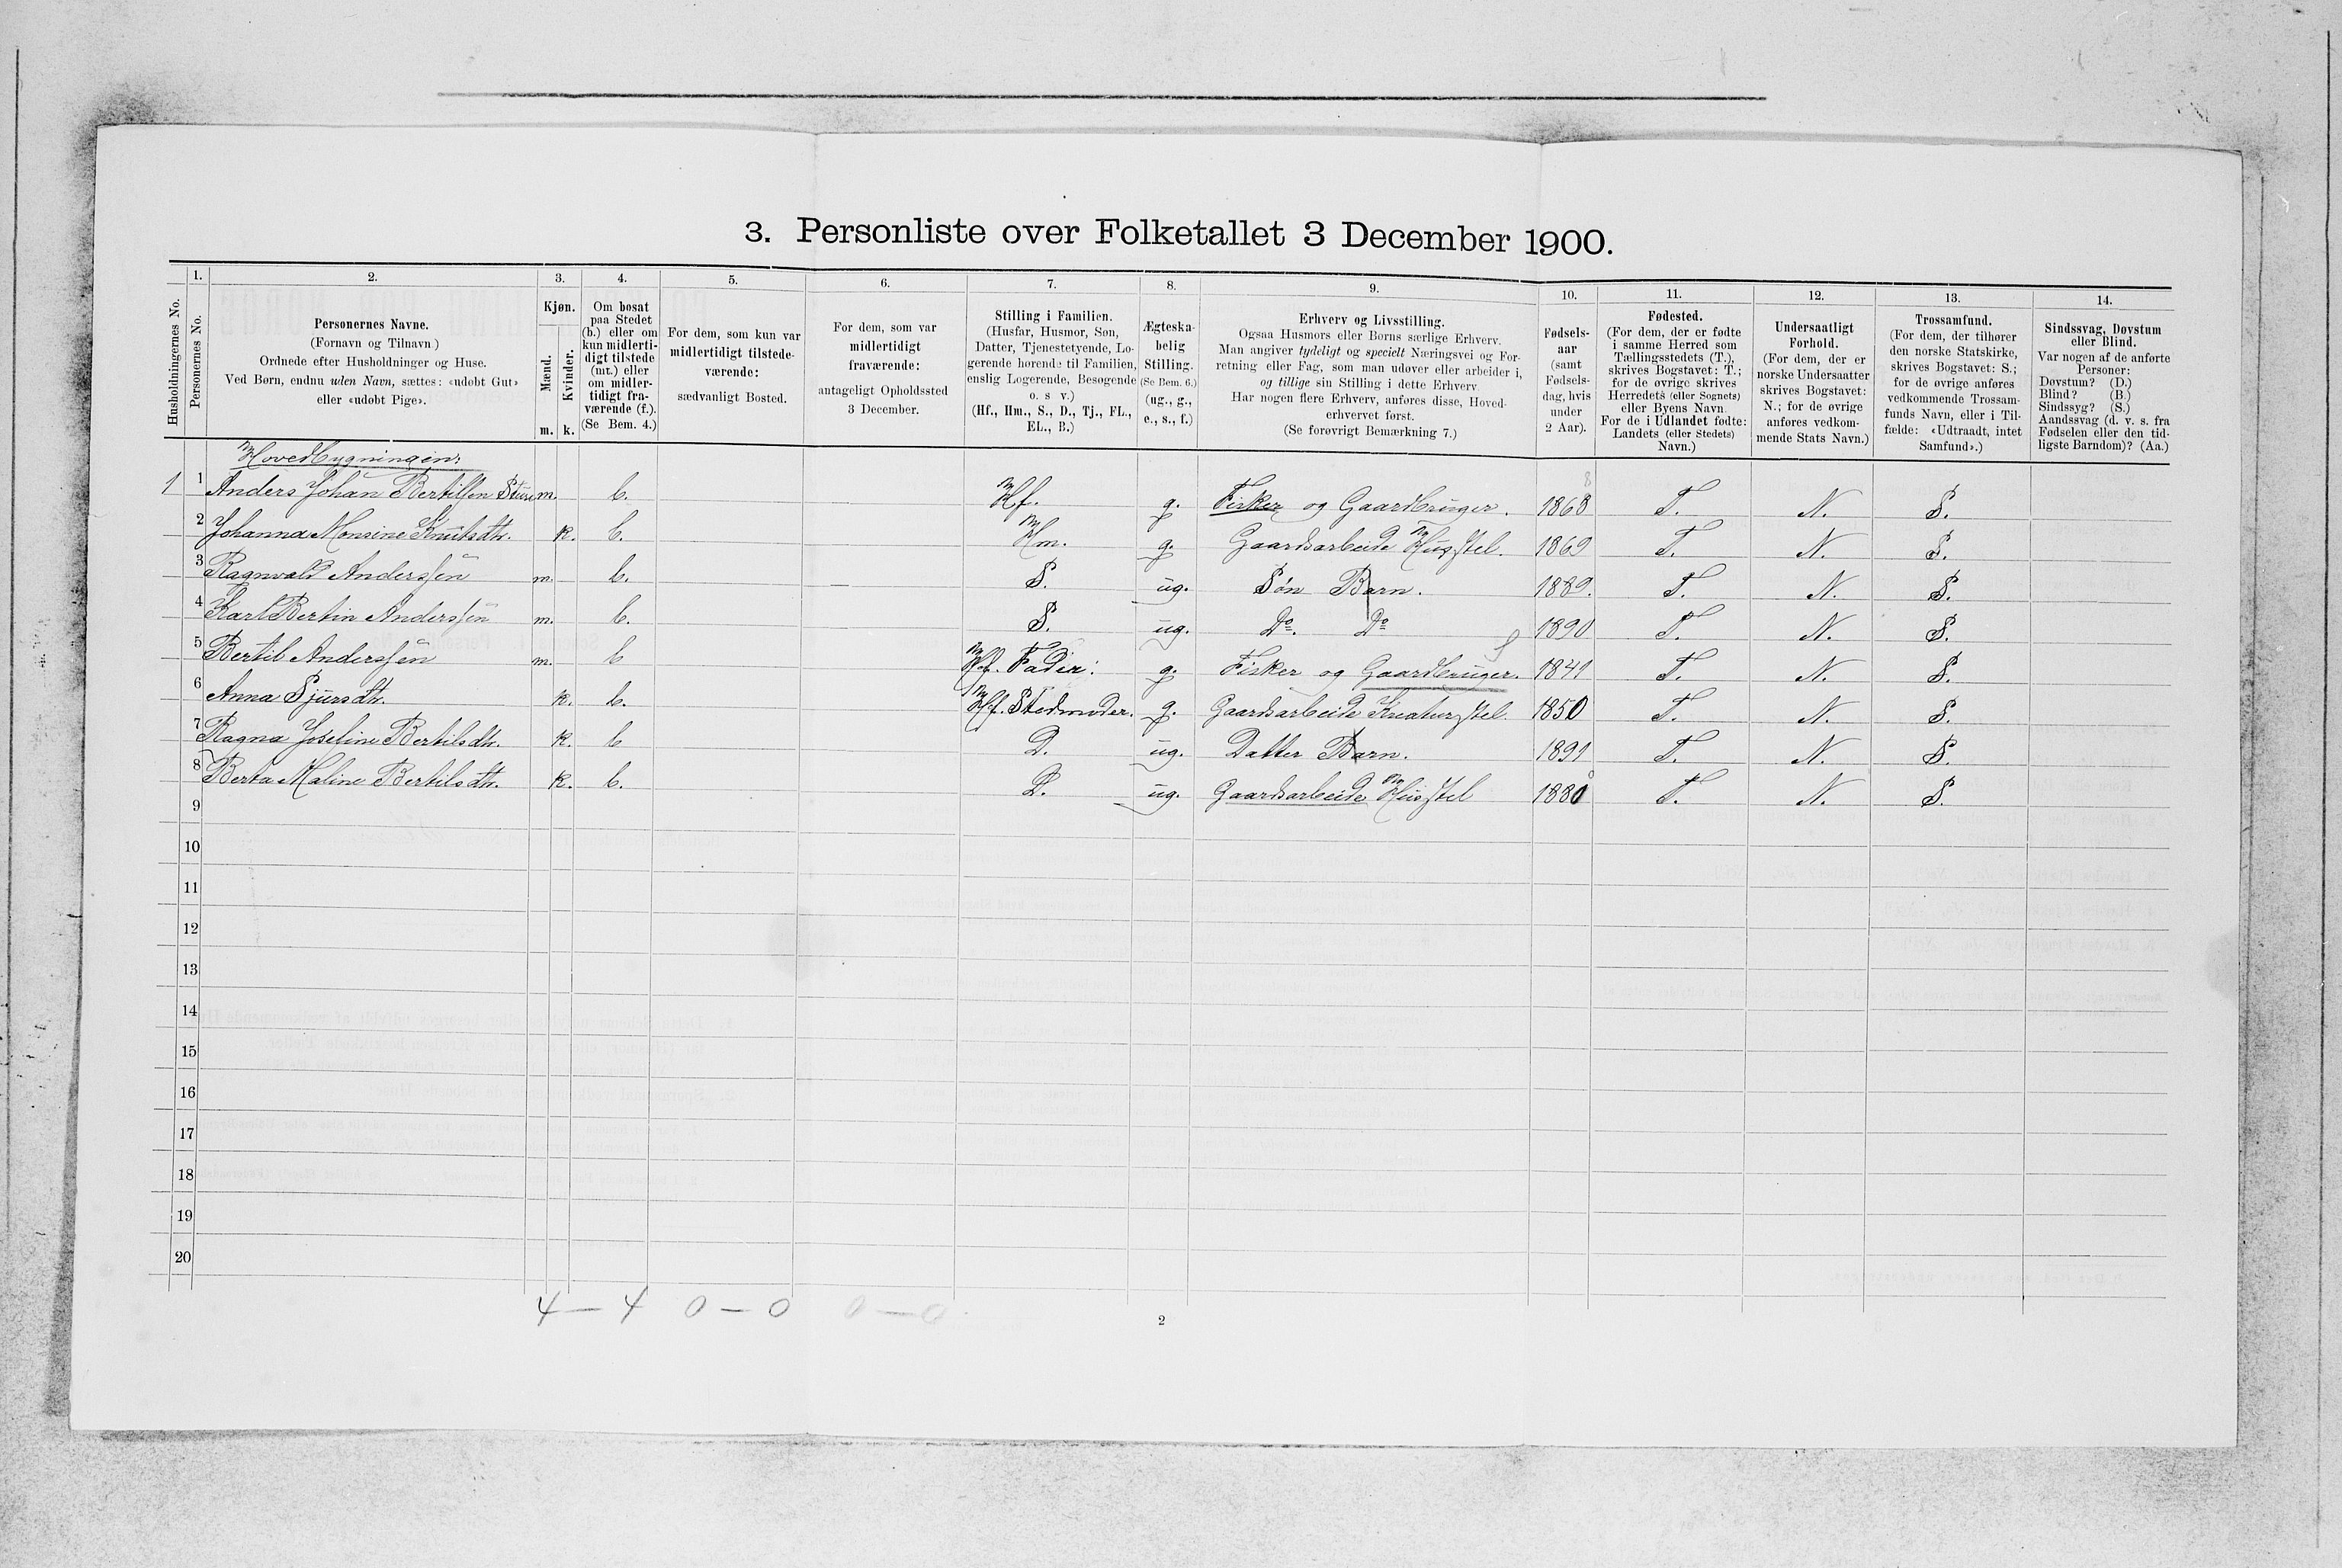 3. Personliste over Folketallet 3 December 1900.
Husholdningernes No.
1.
Personernes No.
2.
Personernes Navne.
(Fornavn og Tilnavn)
Ordnede efter Husholdninger og Huse.
Ved Børn, endnu uden Navn, sættes: «udøbt Gut»
eller «udøbt Pige».
3.
Kjøn.
Mænd.
Kvinder.
m. k.
4.
Om bosat
paa Stedet
(b.) eller om
kun midlerti-
digt tilstede
(mt.) eller
om midler-
tidigt fra-
værende (f.).
(Se Bem. 4.)
5.
For dem, som kun var
midlertidigt tilstede-
værende:
sædvanligt Bosted.
6.
For dem, som var
midlertidigt
fraværende:
antageligt Opholdssted
3 December.
7.
Stilling i Familien.
(Husfar, Husmor, Søn,
Datter, Tjenestetyende, Lo-
gerende hørende til Familien,
enslig Logerende, Besøgende
o. s v.)
(Hf., Hm., S., D., Tj., FL.,
EL., B.)
8.
Ægteska-
belig
Stilling.
(Se Bem. 6.)
(ug., g.,
e., s., f.)
9.
Erhverv og Livsstilling.
Ogsaa Husmors eller Børns særlige Erhverv.
Man angiver tydeligt og specielt Næringsvei og For-
retning eller Fag, som man udøver eller arbeider i,
og tillige sin Stilling i dette Erhverv.
Har nogen flere Erhverv, anføres disse, Hoved-
erhvervet først.
(Se forøvrigt Bemærkning 7.)
10.
Fødsels-
aar
(samt
Fødsels-
dag, hvis
under
2 Aar).
11.
Fødested.
(For dem, der er fødte
i samme Herred som
Tællingsstedets (T.),
skrives Bogstavet: T.;
for de øvrige skrives
Herredets (eller Sognets)
eller Byens Navn
For de i Udlandet fødte:
Landets (eller Stedets)
Navn.)
12.
Undersaatligt
Forhold.
(For dem, der er
norske Undersaatter
skrives Bogstavet:
N.; for de øvrige
anføres vedkom-
mende Stats Navn.)
13.
Trossamfund.
(For dem, der tilhører
den norske Statskirke,
skrives Bogstavet: S.;
for de øvrige anføres
vedkommende Trossam-
funds Navn, eller i Til-
fælde: «Udtraadt, intet
Samfund».)
14.
Sindssvag, Døvstum
eller Blind.
Var nogen af de anførte
Personer:
Døvstum? (D.)
Blind? (B.)
Sindssyg? (S.)
Aandssvag (d. v. s. fra
Fødselen eller den tid-
ligste Barndom)? (Aa.)
Hovedbygningin:
1 1 Anders Johan Bertilsen m. b. Hf. g. Fisker og Gaardbruger. 1868 8 T. N. S.
2 Johanna Monsine Knutsdtr. k. b. Hm. g. Gaardsarbeide Husstel. 1869 T. N. S.
3 Ragnvald Anderssen m. b. S. ug. Søn Barn. 1889. T. N. S.
4 Karl Bertin Anderssen m. b. S. ug. Do. Do 1890 T. N. S.
5 Bertil Anderssen m. b Hf. Fader: g. Fisker og Gaardbruger. 1841 T. N. S.
6 Anna Sjursdtr. k. b. Hf. Stedmoder. g. Gaardsarbeide Kreaturstel. 1850 T. N. S.
7 Ragna Joseline Bertilsdtr. k. b D. ug. Datter Barn. 1891 T. N. S.
8 Berta Maline Bertilsdtr. k. b. D. ug. Gaardsarbeide Husstel 1880 T. N. S.
9
10
11
12
13
14
15
16
17
18
19
20
4 — 4 0 — 0 0 — 0
2